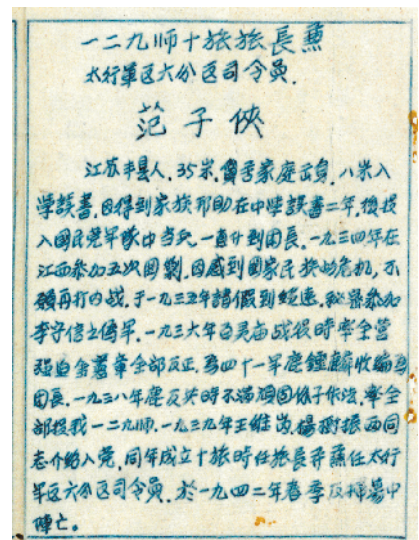 一二九师十旅旅長兼
太行军区六分区司令员.
范子俠
江苏丰县人.35岁.貧苦家庭出身.八岁入
學讀書.因得到家族帮助在中学讀書二年.後投
入國民党军隊中当兵一直升到团長.一九三四年在
江西参加五次围剿.因感到国家民族的危机,不
願再打内战.于一九三五年請假到绥遠.秘密参加
李守信之偽军.一九三六年百灵庙战役時率全营
强迫金憲章全部反正.為四十一军鹿鍾麟收编為
团長.一九三八年鹿反共時不满顽固份子作法.率全
部投我一二九师.一九三九年王維崗.楊樹振两同
志介绍入党.同年成立十旅時任旅長并兼任太行
军区六分区司令员.於一九四二年春季反掃蕩中
陣亡。